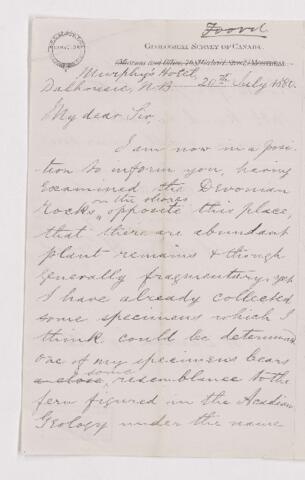 Foord
GEOLOGICAL SURVEY OF CANADA.
Murphy's Hotel,
Dalhousie, N.B. 20th July 1880.
My dear Sir,
I am now in a posi-
tion to inform you, having
examined the Devonian
rocks on the shores opposite this place,
that there are abundant
plant remains & though
generally fragmentary, yet
I have already collected
some specimens which I
think could be determined
one of my specimens bears
some resemblance to the
fern figured in the Acadian
Geology under the name